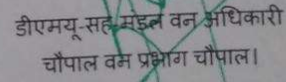 डीएमयू-सह-मंडल वन अधिकारी
चौपाल वन प्रभाग चौपाल।